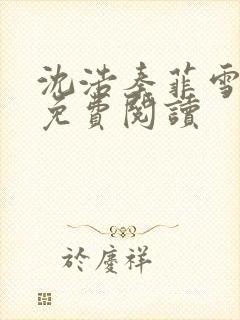 沈浩秦菲雪
免費閱讀
於慶祥